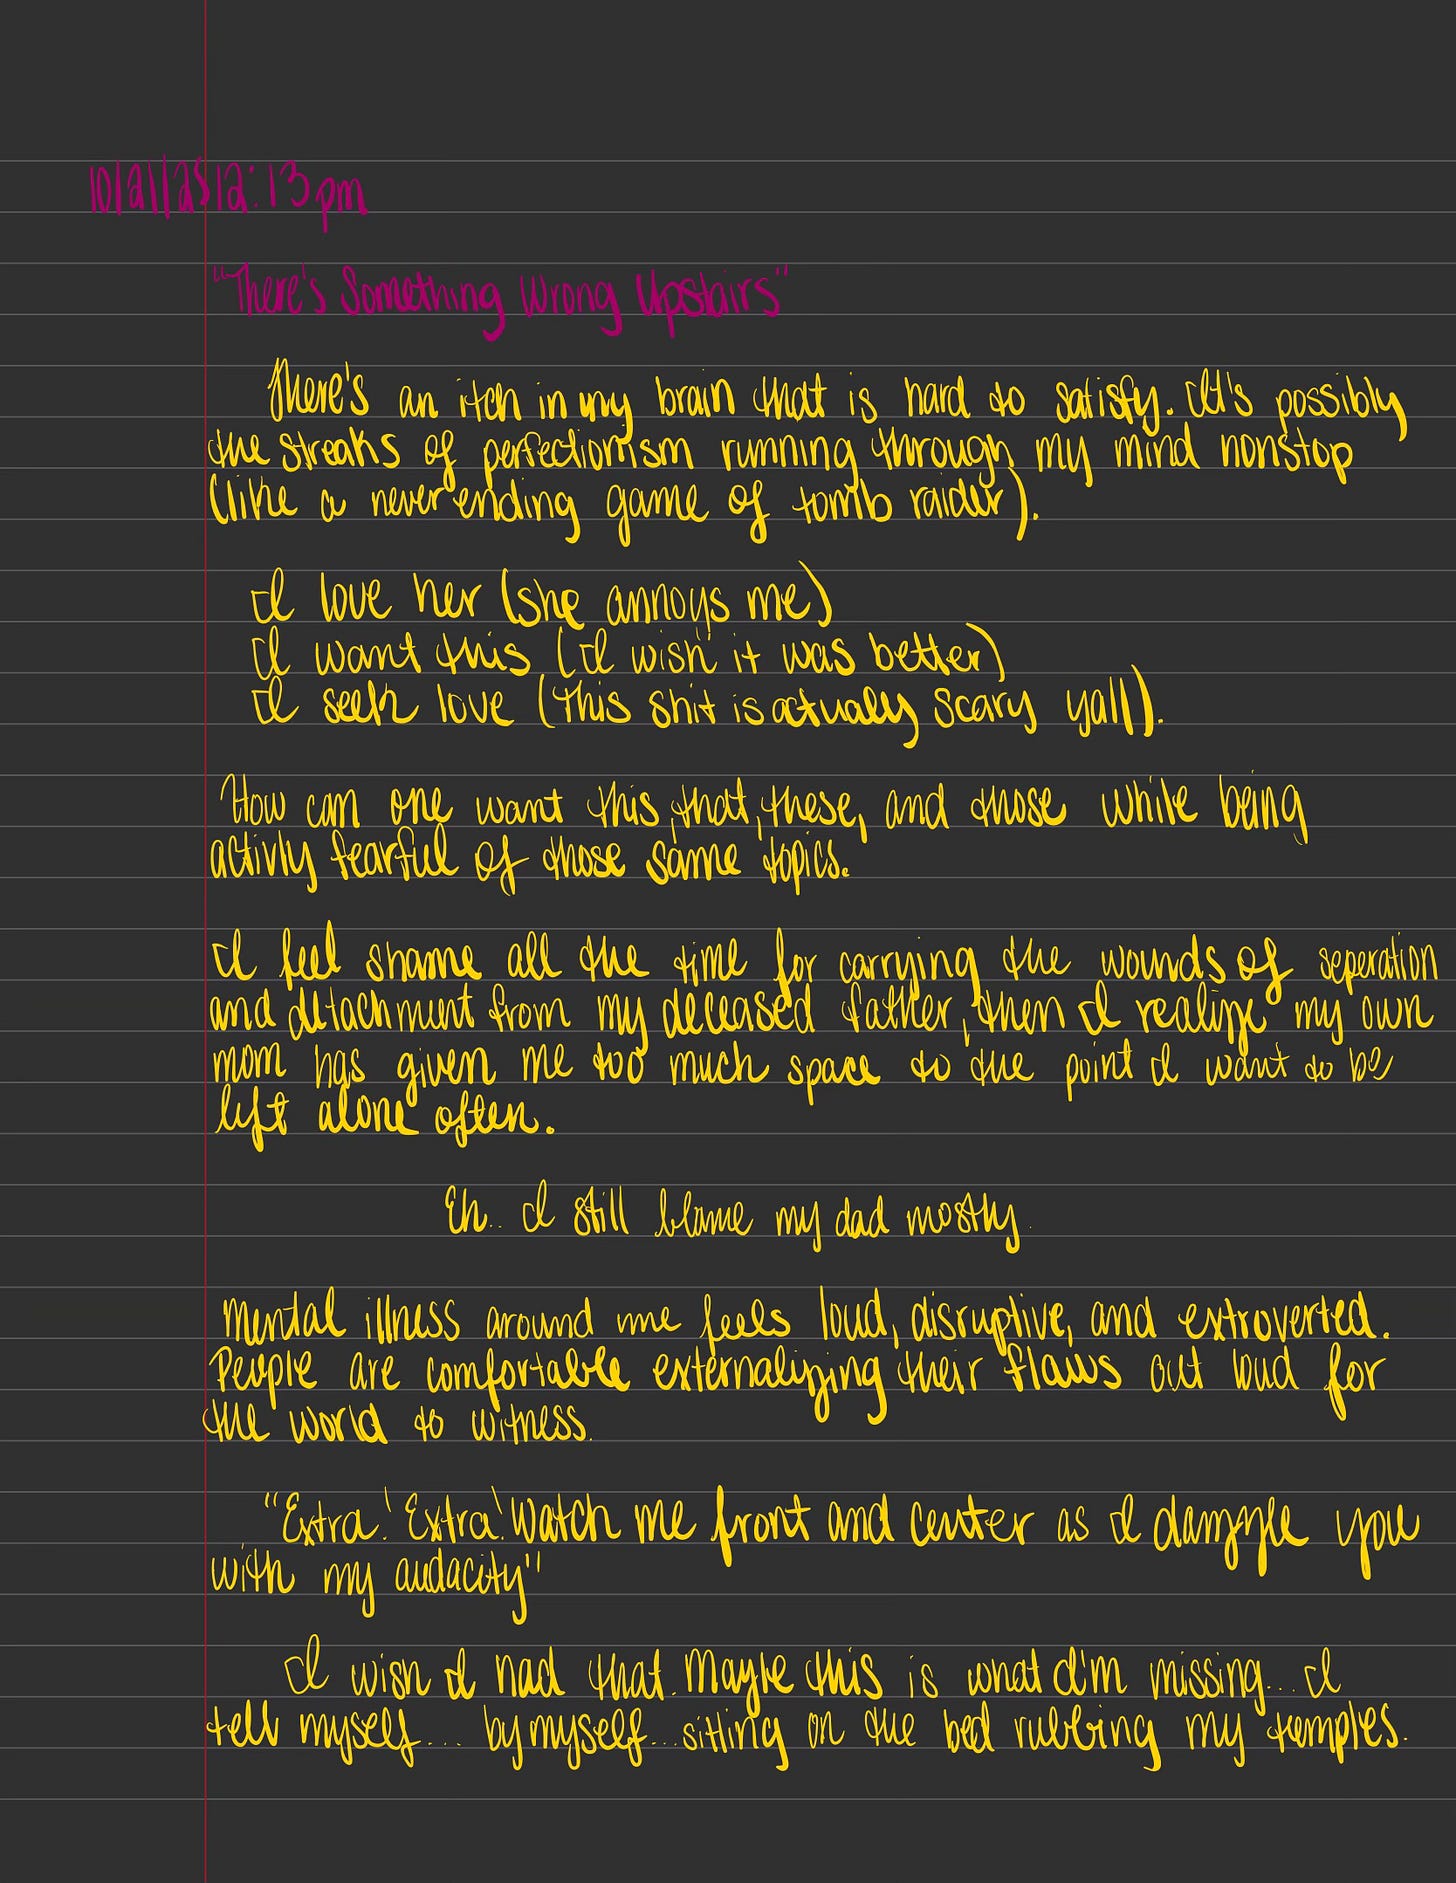 10/21/25 12:13 pm
"There's Something Wrong Upstairs"
There's an itch in my brain that is hard to satisfy. It's possibly
the streaks of perfectionism running through my mind nonstop
(like a never ending game of tomb raider).
I love her (she annoys me)
I want this (I wish it was better)
I seek love (this shit is actually scary yall).
How can one want this, that, these, and those while being
activly fearful of those same topics.
I feel shame all the time for carrying the wounds of seperation
and detachment from my deceased father, then I realize my own
mom has given me too much space to the point I want to be
left alone often.
Eh.. I still blame my dad mostly.
Mental illness around me feels loud, disruptive, and extroverted.
People are comfortable externalizing their flaws out loud for
the world to witness.
"Extra! Extra! Watch me front and center as I dazzle you
with my audacity"
I wish I had that. Maybe this is what I'm missing... I
tell myself... by myself... sitting on the bed rubbing my temples.